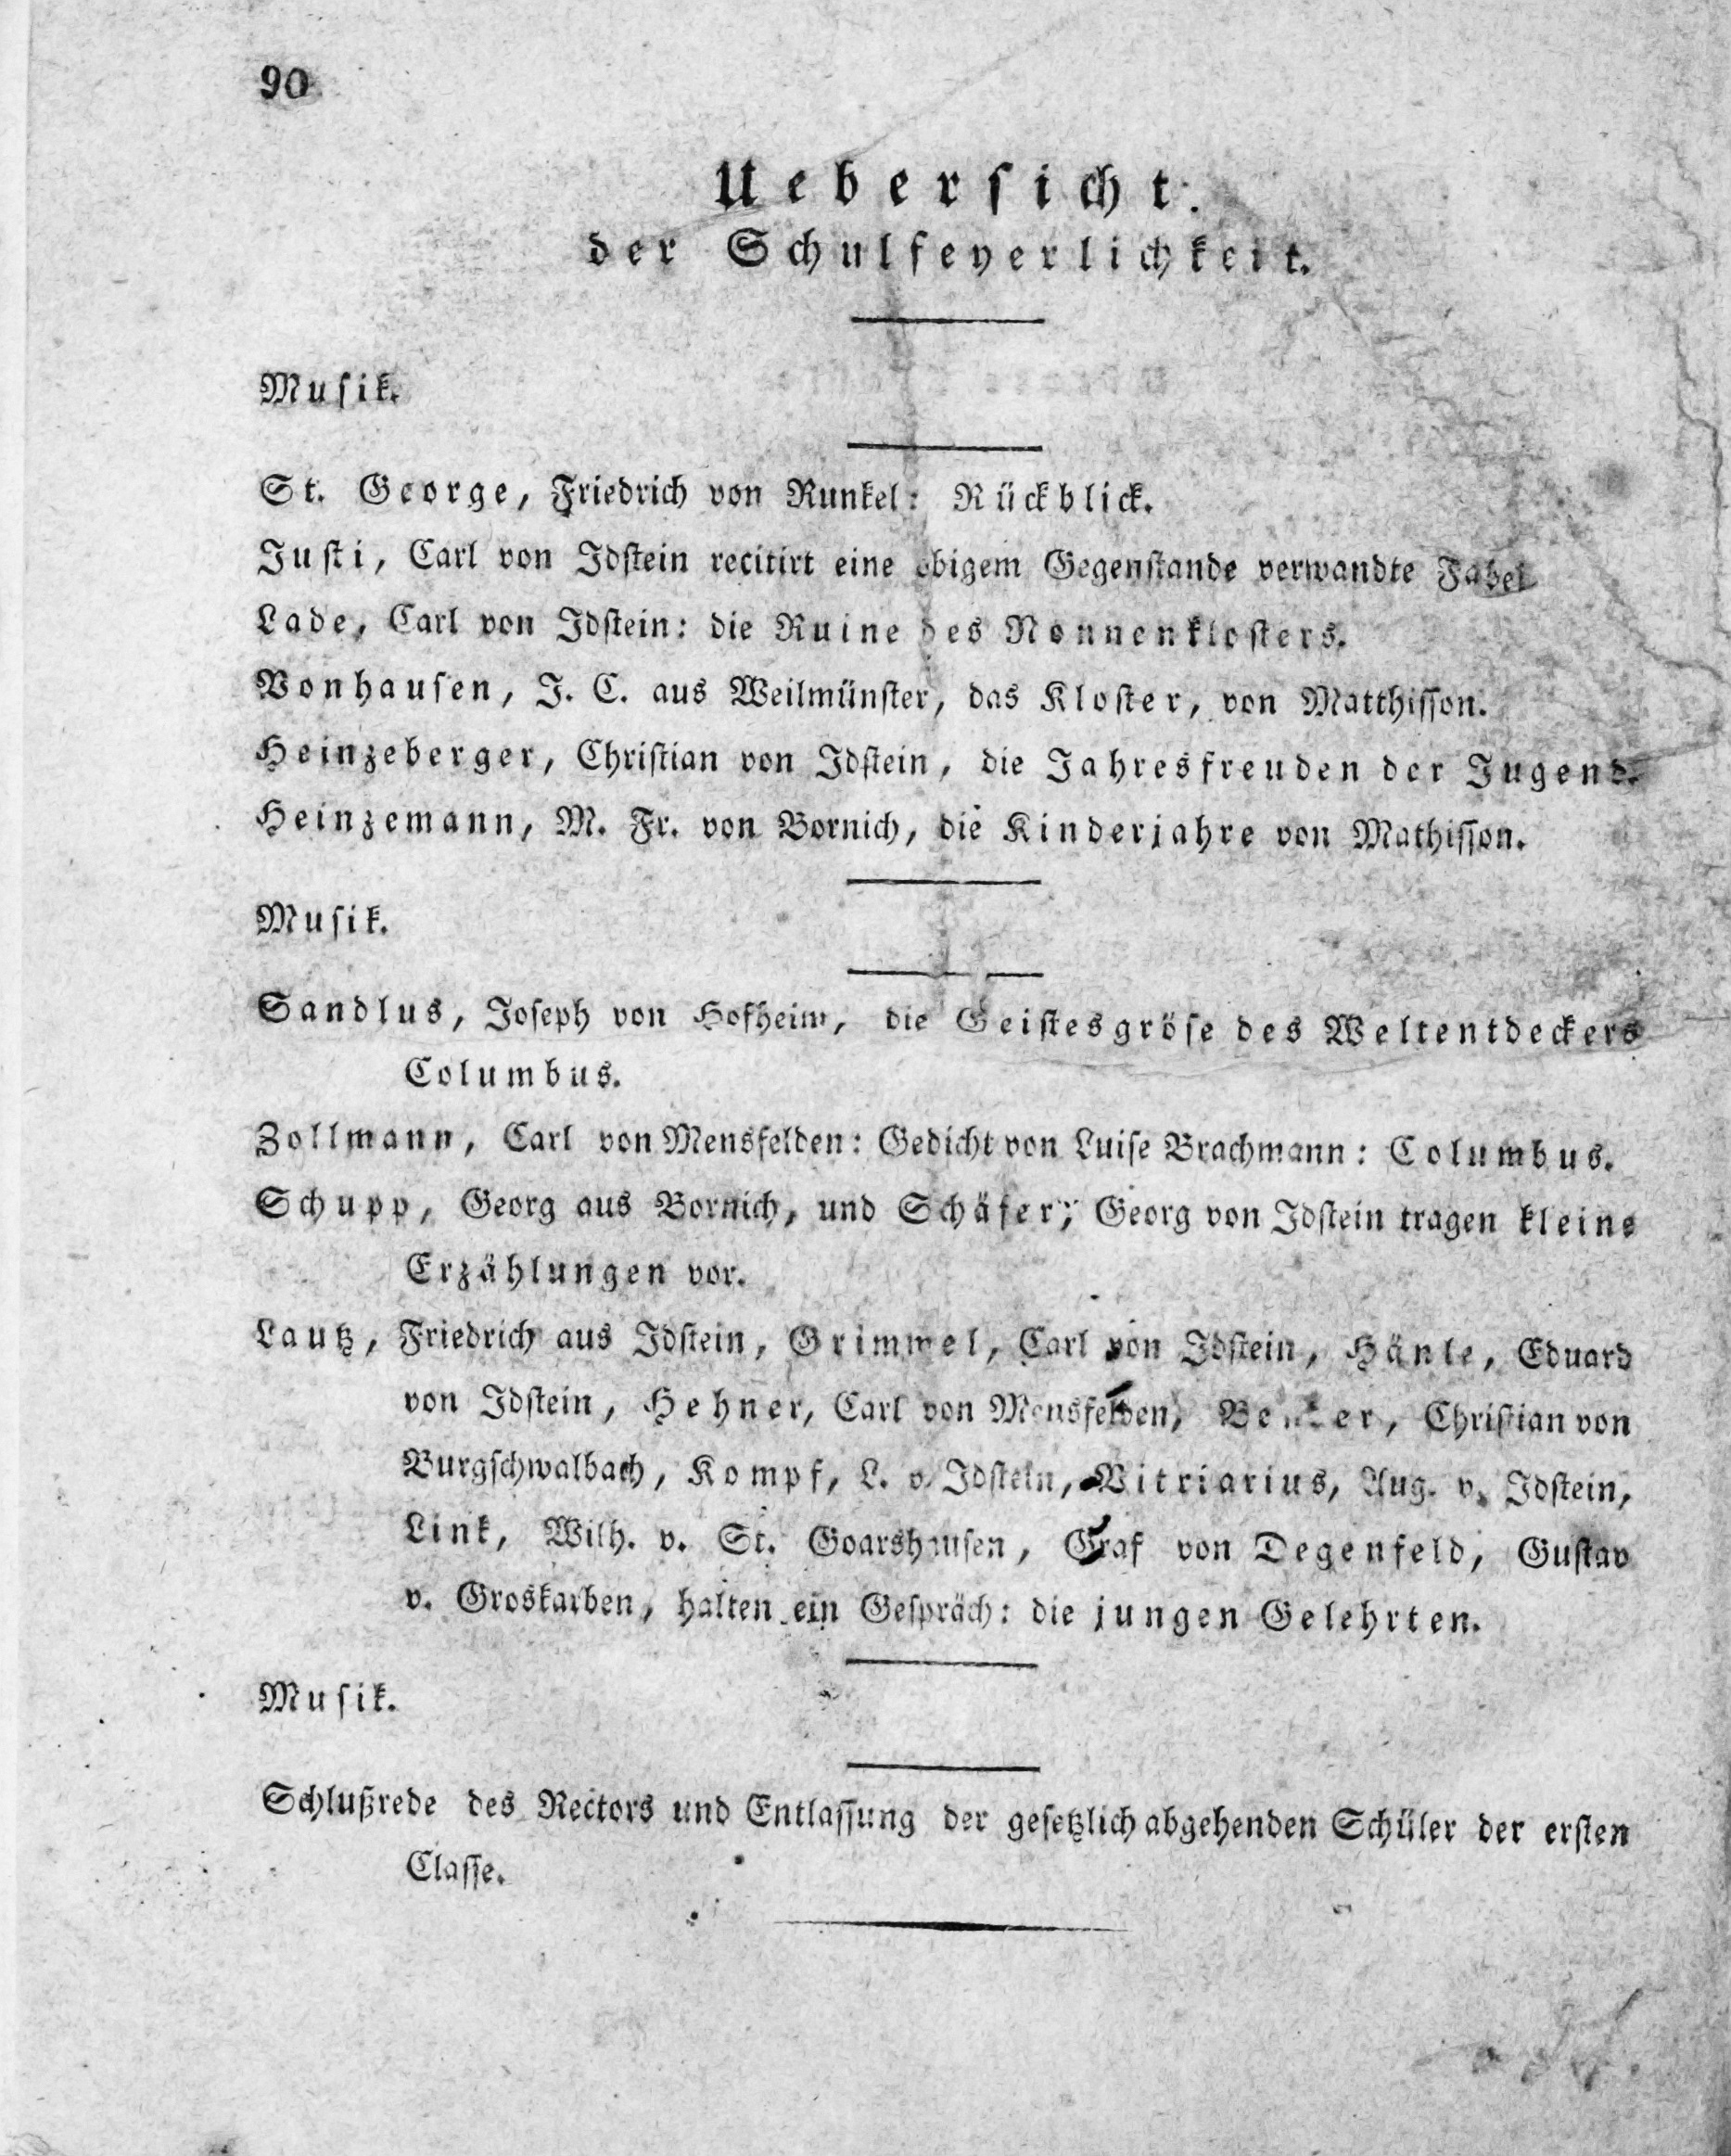 90
Uebersicht.
der Schulfeyerlichkeit.
Musik.
St. George, Friedrich von Runkel: Rückblick.
Justi, Carl von Idstein recitirt eine obigem Gegenstande verwandte Fabel
Lade, Carl von Idstein: die Ruine des Nonnenklosters.
Vonhausen, J. C. aus Weilmünster, das Kloster, von Matthisson.
Heinzeberger, Christian von Idstein, die Jahresfreuden der Jugend.
Heinzemann, M. Fr. von Bornich, die Kinderjahre von Mathisson.
Musik.
Sandlus, Joseph von Hofheim, die Geistesgröse des Weltentdeckers
Columbus.
Zollmann, Carl von Mensfelden: Gedicht von Luise Brachmann: Columbus.
Schupp, Georg aus Bornich, und Schäfer, Georg von Idstein tragen kleine
Erzählungen vor.
Lautz, Friedrich aus Idstein, Grimmel, Carl von Idstein, Hänle, Eduard
von Idstein, Hehner, Carl von Mensfelden, Christian von
Burgschwalbach, Kompf, L. v. Idstein, Vitriarius, Aug. v. Idstein,
Link, Wilh. v. St. Goarshausen, Graf von Degenfeld, Gustav
v. Groskarben, halten ein Gespräch: die jungen Gelehrten.
Musik.
Schlußrede des Rectors und Entlassung der gesetzlich abgehenden Schüler der ersten
Classe.